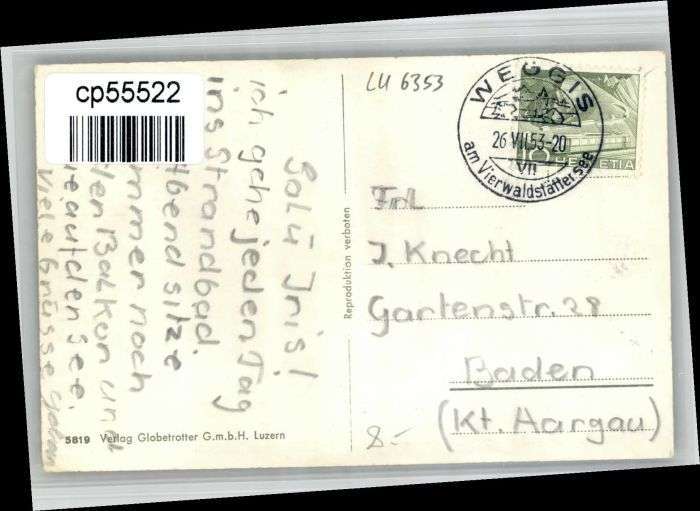 cp55522
LU 6353
WEGGIS
26 VII.53-20
VII
am Vierwaldstättersee
10 HELVETIA
Salü Iris!
ich gehe jeden Tag
ins Strandbad.
Abend sitze
immer noch
den Balkon und
auf den See.
Viele Grüsse
Reproduktion verboten
Frl.
J. Knecht
Gartenstr. 28
Baden
(Kt. Aargau)
8.-
5819 Verlag Globetrotter G.m.b.H. Luzern